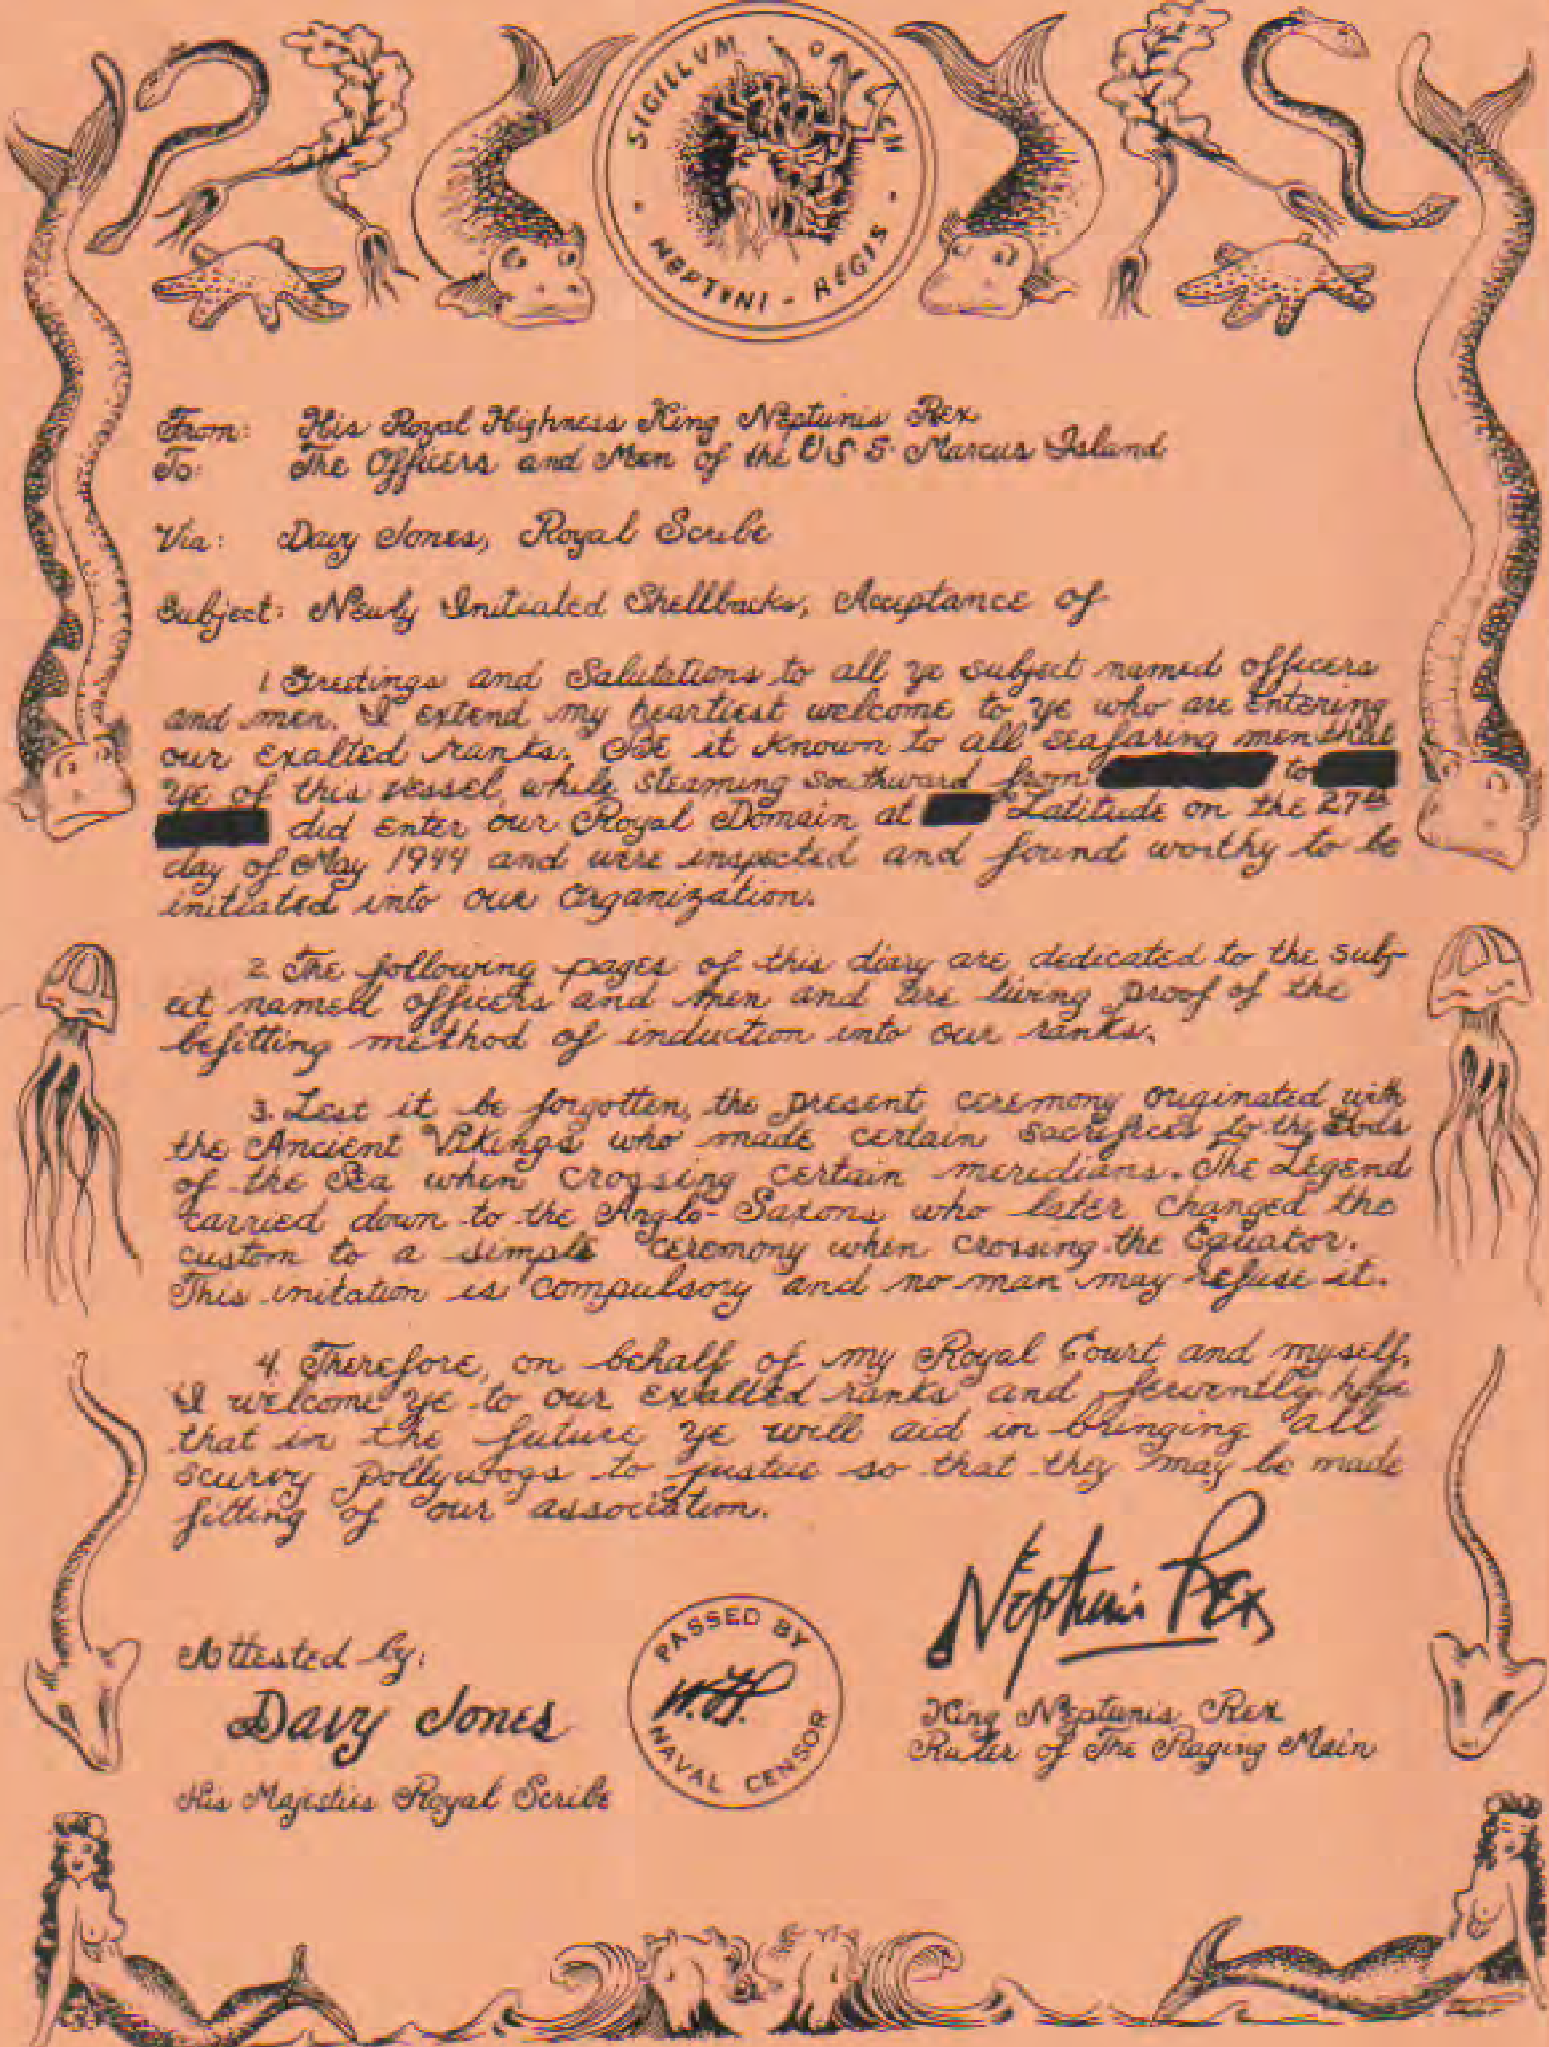 SIGILLVM · OFFICII
NEPTVNI - REGIS
From: His Royal Highness King Neptunis Rex
To: The Officers and Men of the U.S.S. Marcus Island
Via: Davy Jones, Royal Scribe
Subject: Newly Initiated Shellbacks, Acceptance of
1 Greetings and Salutations to all ye subject named officers
and men. I extend my heartiest welcome to ye who are entering
our exalted ranks. Be it known to all seafaring men that
ye of this vessel, while steaming southward from to
did enter our Royal Domain at Latitude on the 27th
day of May 1944 and were inspected and found worthy to be
initiated into our organization.
2 The following pages of this diary are dedicated to the subj-
ect named officers and men and are living proof of the
befitting method of induction into our ranks.
3. Lest it be forgotten, the present ceremony originated with
the Ancient Vikings who made certain sacrifices to the Gods
of the Sea when crossing certain meridians. The Legend
carried down to the Anglo-Saxons who later changed the
custom to a simple ceremony when crossing the Equator.
This initation is compulsory and no man may refuse it.
4. Therefore, on behalf of my Royal Court and myself,
I welcome ye to our exalted ranks and fervently hope
that in the future ye will aid in bringing all
scurvy pollywogs to justice so that they may be made
fitting of our association.
Neptunis Rex
PASSED BY
NAVAL CENSOR
Attested by:
Davy Jones
King Neptunis Rex
Ruler of The Raging Main
His Majesties Royal Scribe